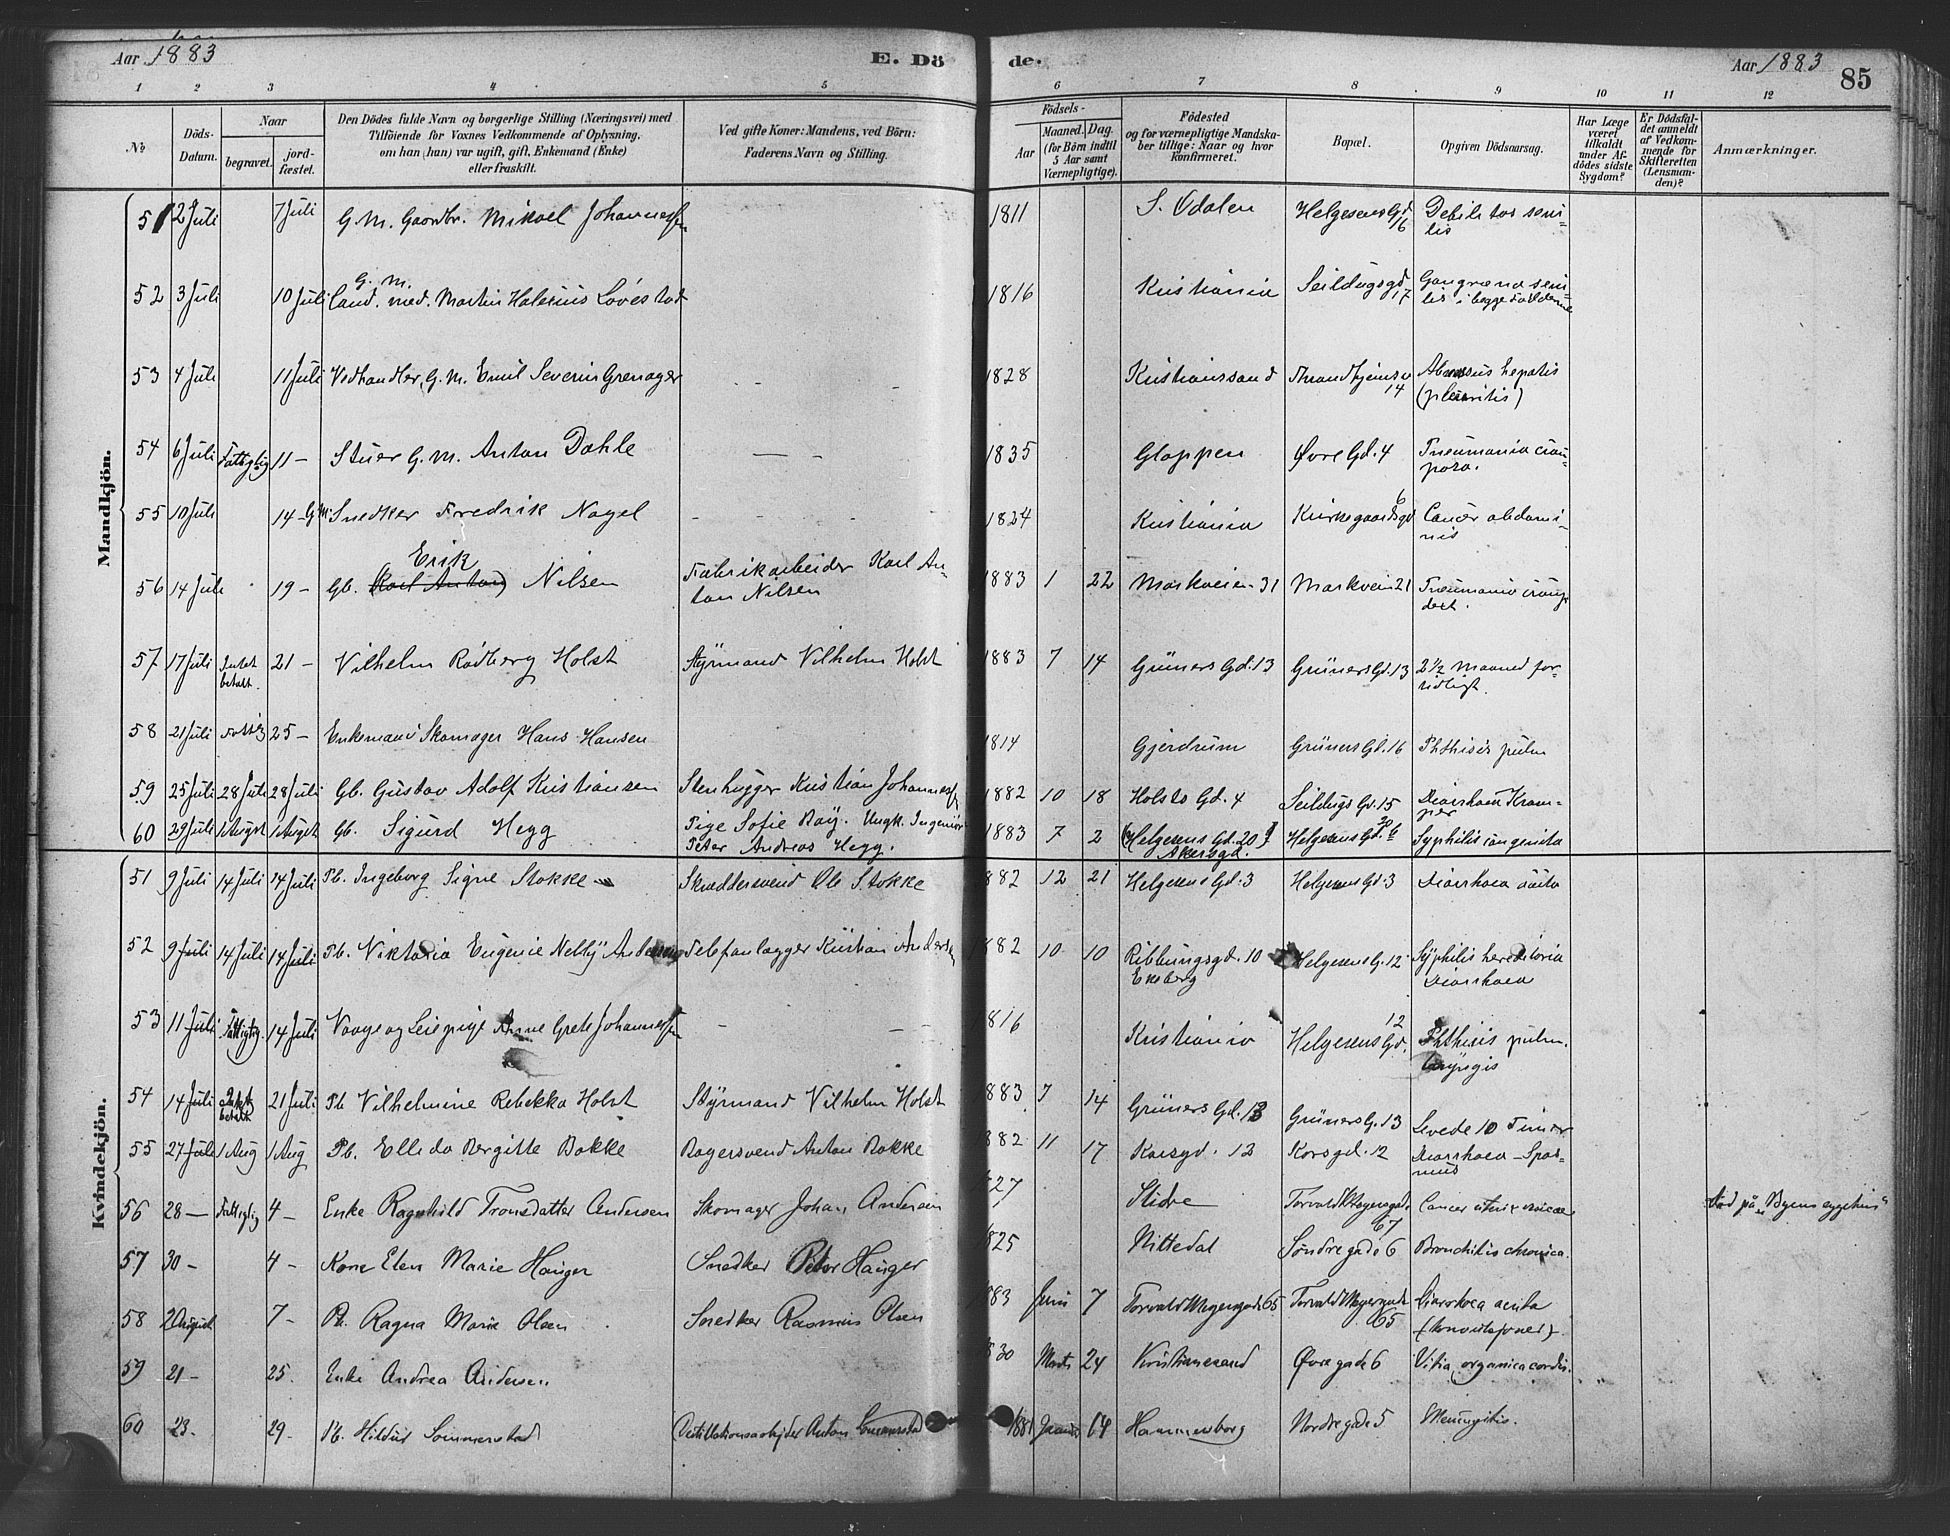 Aar 1883 E. Dö de. Aar 1883 85
1 2 3 4 5 6 7 8 9 10 11 12
No
Döds-Datum.
Naar
begravet.
jord-fæstet.
Den Dödes fulde Navn og borgerlige Stilling (Næringsvei) med
Tilföiende for Voxnes Vedkommende af Oplysning,
om han (hun) var ugift, gift, Enkemand (Enke)
eller fraskilt.
Ved gifte Koner: Mandens, ved Börn:
Faderens Navn og Stilling.
Födsels-
Aar
Maaned. Dag.
(for Börn indtil
5 Aar samt
Værnepligtige).
Födested
og for værnepligtige Mandska-
ber tillige: Naar og hvor
konfirmeret.
Bopæl.
Opgiven Dödsaarsag.
Har Læge
været
tilkaldt
under Af-
dödes sidste
Sygdom?
Er Dödsfal-
det anmeldt
af Vedkom-
mende for
Skifteretten
(Lensman-
den)?
Anmærkninger.
Mandkjön.
51 2 Juli 7 Juli G. M. Gaardbr. Mikael Johannessen 1811 S. Odalen Helgesens Gd. 16 Debilitas seni-
lis
52 3 Juli 10 Juli G. M. Cand. med. Martin Halesius Lövestad 1816 Kristiania Seildugsgd. 17 Gangræna seni-
lis i begge
53 4 Juli 11 Juli Vedhandler, G. M. Emil Severin Grenager 1828 Kristianssand Throndhjemsv 14 Abscessus hepatis
(pleuritis)
54 6 Juli Fattiglig 11 – Stuer G. M. Anton Dahle 1835 Gloppen Øvre Gd. 4 Pneumonia crou-
posa.
55 10 Juli 14 – G. M. Snedker Fredrik Nagel 1824 Kristiania Kirkegaardsgd 6 Cancer abdomi-
nis
56 14 Juli 19 – Gb. (Karl Anton) Erik Nilsen Fabrikarbeider Karl An-
ton Nilsen 1883 1 22 Markveien 31 Markvein 21 Pneumonia croup.
dext.
57 17 Juli Intet betalt. 21 – Vilhelm Rödberg Holst Styrmand Vilhelm Holst 1883 7 14 Grüners Gd. 13 Grüners Gd. 13 2½ Maaned for-
tidligt.
58 21 Juli 25 – Enkemand Skomager Hans Hansen 1814 Gjerdrum Grüners Gd. 16 Phthisis pulm
59 25 Juli 28 Juli 28 Juli Gb. Gustav Adolf Kristiansen Stenhugger Kristian Johannessen 1882 10 18 Holsts Gd. 4 Seildugs Gd. 15 Diarrhoea Kram-
per
60 29 Juli 1 August 1 August Gb. Sigurd Hegg Pige Sofie Ungk. Ingeniör
Peter Andreas Hegg. 1883 7 2 (Helgesens Gd. 20)
Akersgd. Helgesens Gd. Syphilis congenita
Kvindekjön.
51 9 Juli 14 Juli 14 Juli Pb. Ingeborg Signe Stokke Skræddersvend Ole Stokke 882 12 21 Helgesens Gd. 3 Helgesens Gd. 3 Diarrhoea acuta
52 9 Juli 14 Juli 14 Juli Pb. Viktoria Eugenie Nelly Andersen Telefonlægger Kristian Andersen 882 10 10 Ribbungsgd. 10
Ekeberg Helgesens G. 12 Syphilis hereditaria
Diarrhoea
53 11 Juli Fattiglig. 14 Juli Anne Grete Johannessen 816 Kristiania Helgesens Gd. 12 Phthisis pulm.
laryngis
54 14 Juli Intet betalt 21 Juli Pb Vilhelmine Rebekka Holst Styrmand Vilhelm Holst 883 7 14 Grüners Gd. 13 Grüners G. 13 Levede 10 Timer
55 27 Juli 1 Aug 1 Aug Pb. Ellida Bergitte Bakke Bagersvend Anton Bakke 882 11 17 Korsgd. 12 Korsgd. 12 Diarrhoea – Spas-
mus
56 28 – Fattiglig 4 – Enke Ragnhild Tronsdatter Andersen Skomager Johan Andersen 827 Slidre Torvald Meyersgade 67 Cancer uteri & vesicae Död på "Byens sygehus"
57 30 – 4 – Kone Elen Marie Hauger Snedker Peter Hauger 825 Nittedal Søndregade 6 Bronchitis chronica.
58 2 August 7 – Pb. Ragna Marie Olsen Snedker Rasmus Olsen 883 Juni 7 Torvald Meyersgade 65 Torvald Meyersgade 65 Diarrhoea acuta
(konvulsjoner).
59 21 – 25. Enke Andrea Andersen 830 Marts 24 Kristianssand Øvregade 6 Vitia organica cordis.
60 23. 29. Pb. Hildur Sommerstad Destillationsarbejder Anton Sommerstad 1881 Januar 14 Hammersborg Nordregade 5 Meningitis.